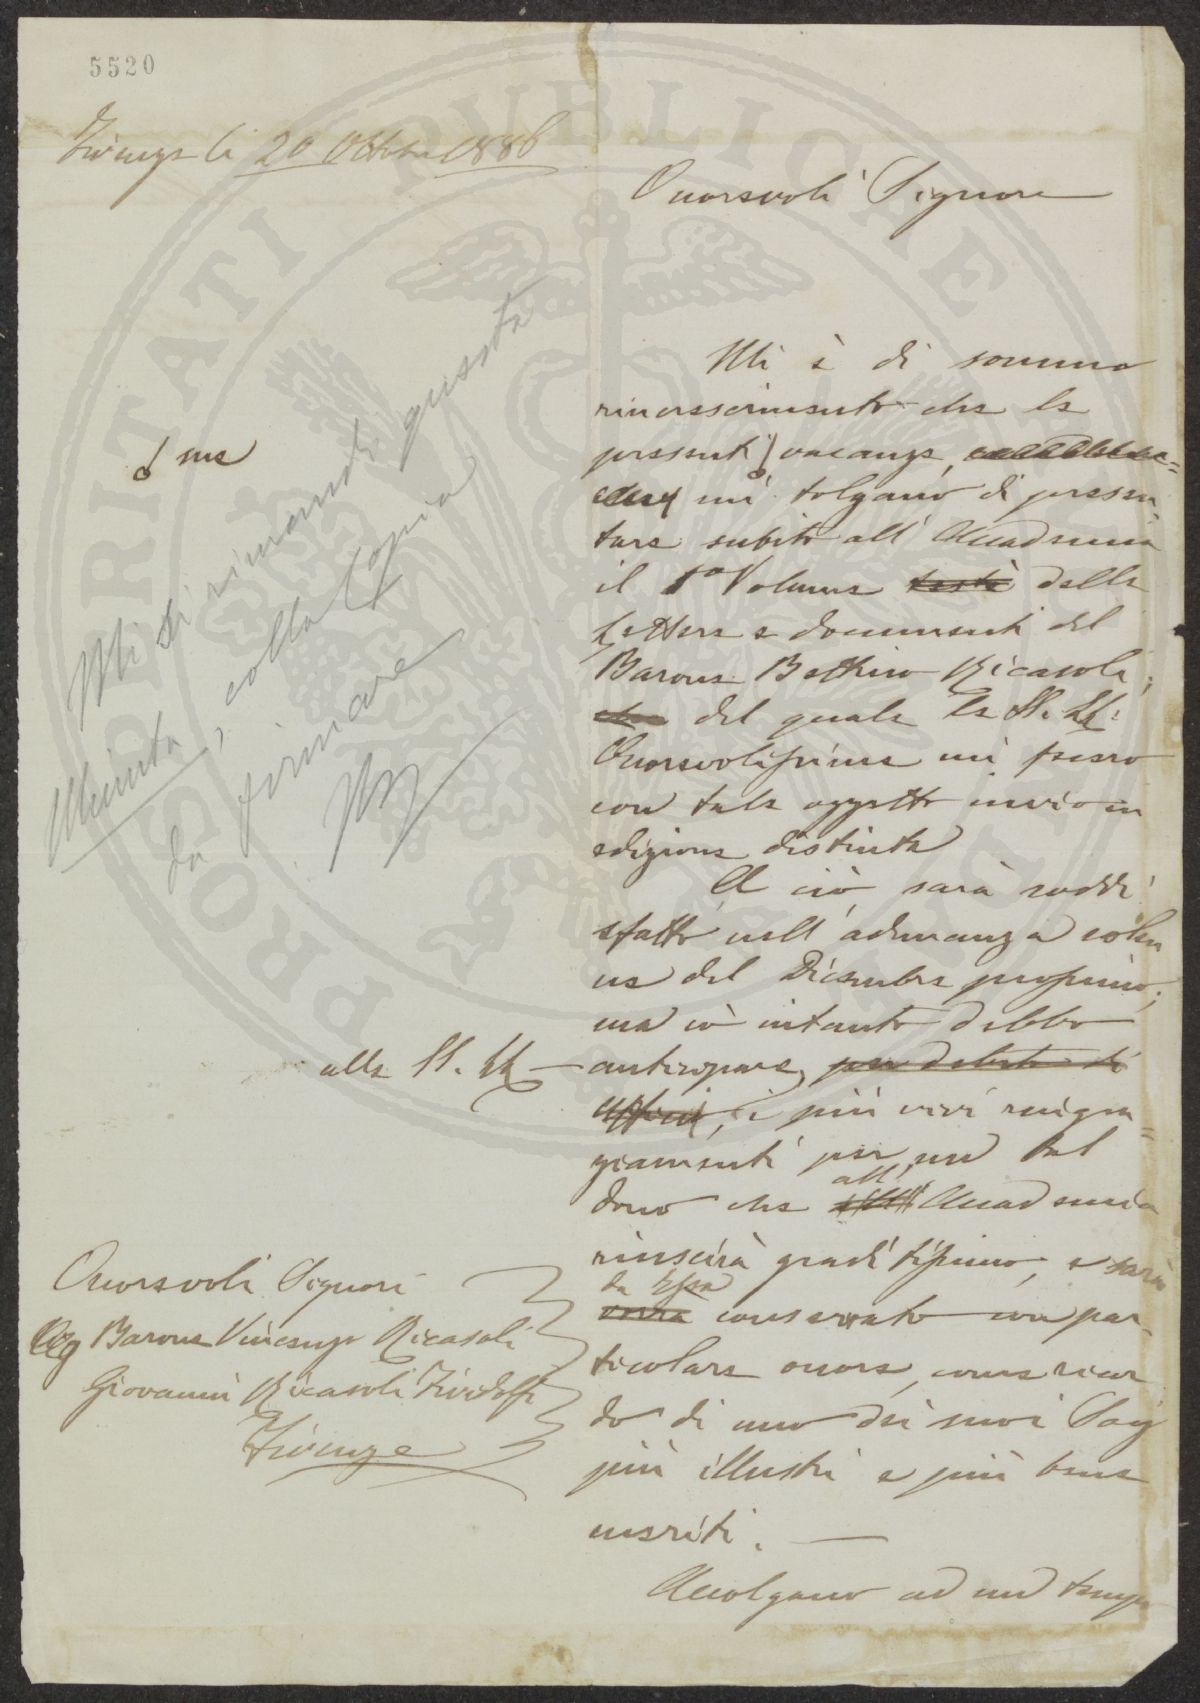 5520
Firenze li 20 Ottobre 1886
Onorevoli Signori
Mi è di sommo
rincrescimento che le
presenti vacanze,
mi tolgano di presen-
tare subito all' Accademia
il 1° Volume testè delle
Lettere e documenti del
Barone Bettino Ricasoli,
che del quale le SS. LL:
Onorevolissime mi fecero
con tale oggetto invio in
edizione distinta
A ciò sarà soddi
sfatto nell' adunanza solen
ne del Dicembre prossimo;
ma io intanto debbo
anticipare, per debito di
ufficio, i più vivi ringra-
ziamenti per un tal
dono che all' Accademia
riuscirà graditissimo, e sarà
da essa
conservato con par-
ticolare onore, come ricor
do di uno dei suoi Socj
più illustri e più bene
meriti. —
Accolgano ad un tempo
me
Mi si rimandi questa
Minuta, colla Copia
da firmare
alle SS. LL
Onorevoli Signori
Barone Vincenzo Ricasoli
Giovanni Ricasoli Firidolfi
Firenze
PROSPERITATI PVBLICAE